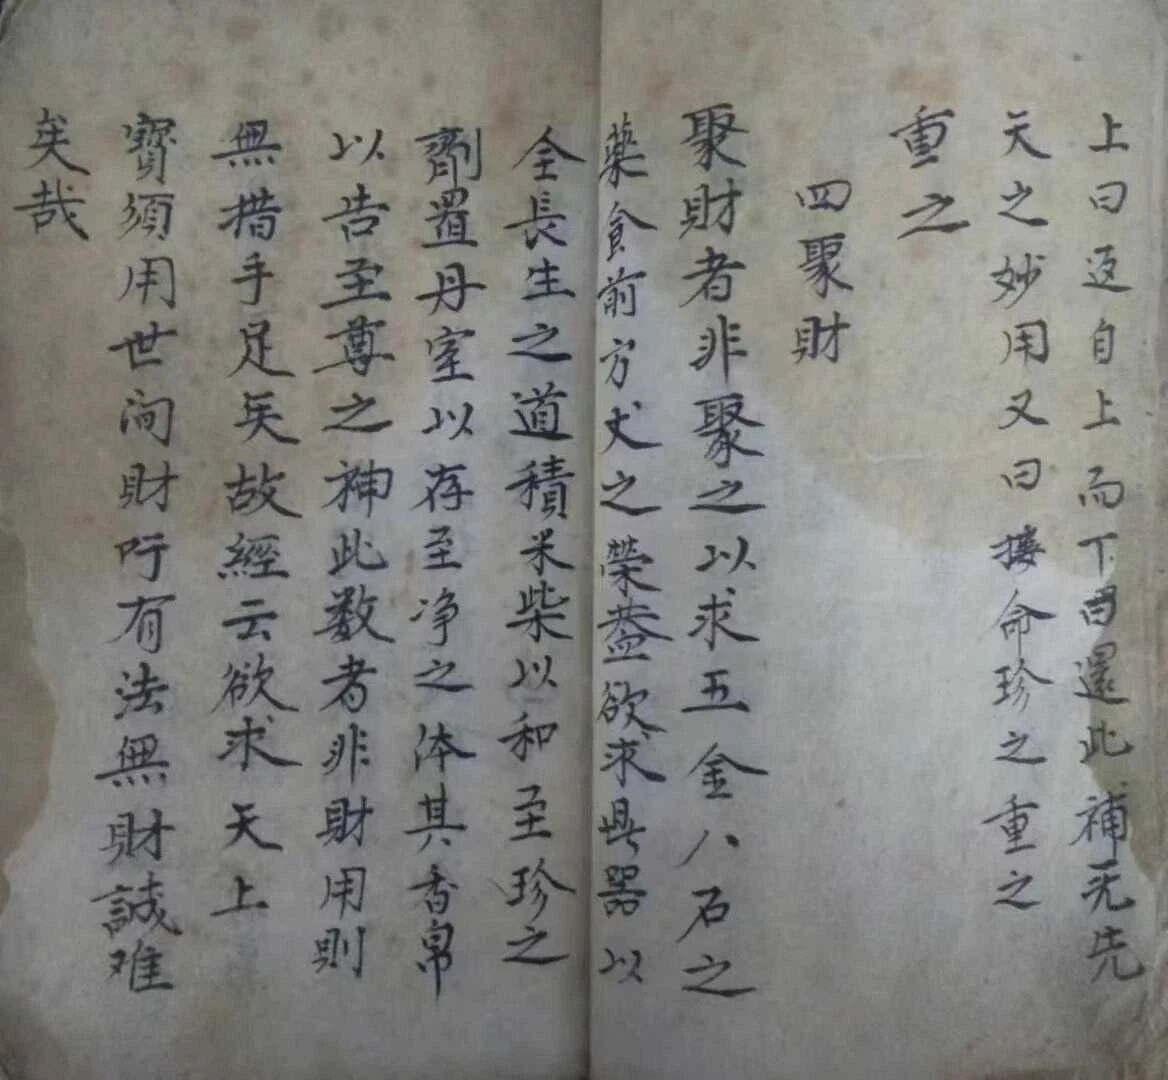 上曰返自上而下曰還此補无先
天之妙用又曰接命珍之重之
重之
四聚財
聚財者非聚之以求五金八石之
藥食前方丈之榮蓋欲求具器以
全長生之道積米柴以和至珍之
劑置丹室以存至净之体其香帛
以告至尊之神此数者非財用則
無措手足矣故經云欲求天上
寳須用世间財吁有法無財誠难
矣哉